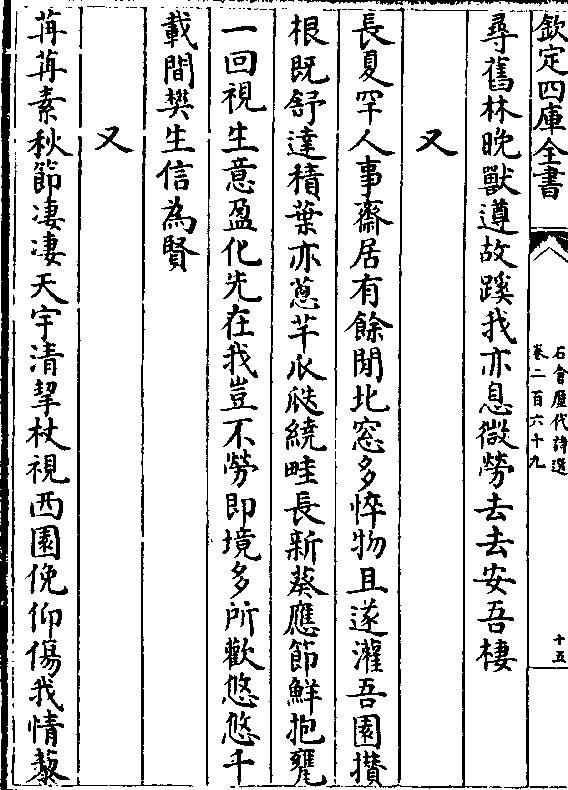 欽定四庫全書
石倉歷代詩選
卷二百六十九
十五
尋舊林晚獸遵故蹊我亦息微勞去去安吾棲
又
長夏罕人事齋居有餘閒北窓多悴物且遂灌吾園攅
根既舒達積葉亦蔥芊瓜瓞繞畦長新葵應節鮮抱甕
一回視生意盈化先在我豈不勞即境多所歡悠悠千
載間樊生信為賢
又
苒苒素秋節凄凄天宇清挈杖視西園俛仰傷我情藜